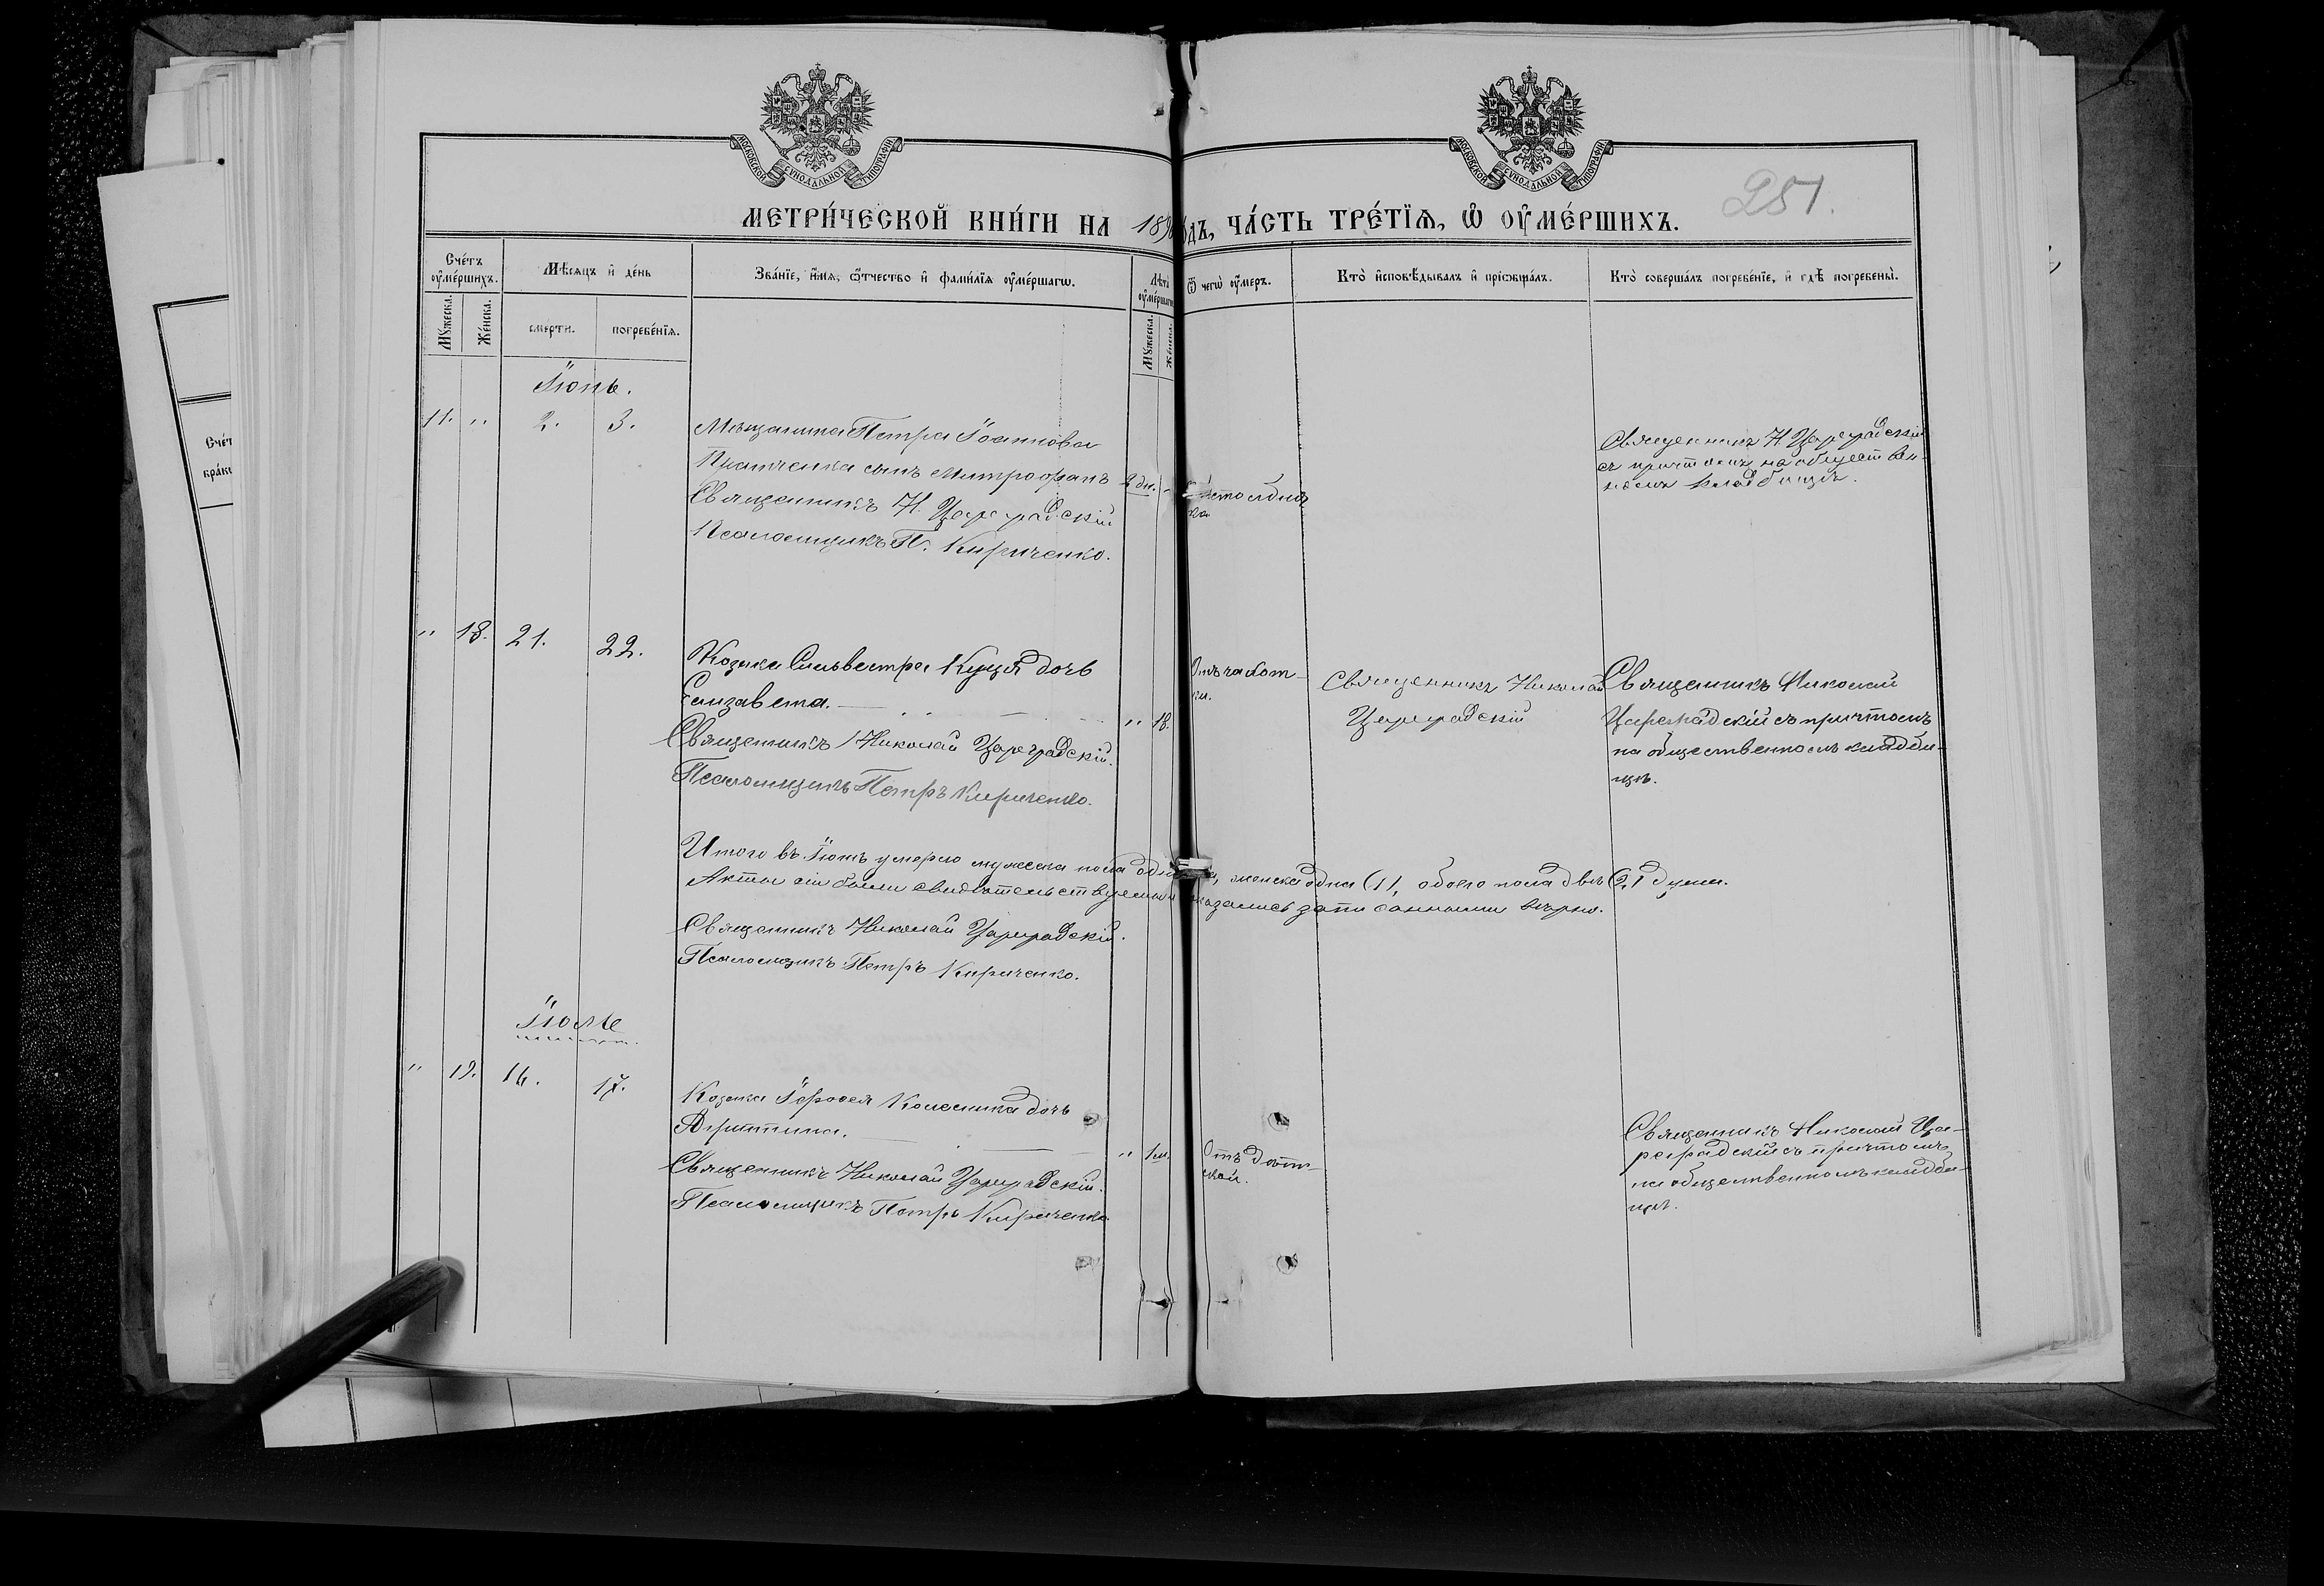 МОСКОВСКОЙ СѴНОДАЛЬНОЙ ТИПОГРАФІИ
МОСКОВСКОЙ СѴНОДАЛЬНОЙ ТИПОГРАФІИ
251.
МЕТРИ́ЧЕСКОЙ КНИ́ГИ НА 189 ДЪ, ЧА́СТЬ ТРЕ́ТІѦ, Ѡ ОУ҆МЕ́РШИХЪ.
Сче́тъ оу҆ме́ршихъ.
Мѣ́сяцъ и҆ де́нь
Зва́нїе, и҆́мя, ѻ҆́тчество и҆ фами́лїя оу҆ме́ршагѡ.
Лѣ́та оу҆ме́ршагѡ
Ѿ чегѡ̀ оу҆́меръ.
Кто̀ и҆сповѣ́дывалъ и҆ прїѡбща́лъ.
Кто̀ соверша́лъ погребе́нїе, и҆ гдѣ̀ погребены̀.
Му́жеска.
Же́нска.
смерти.
погребе́нїя.
Му́жеска.
Же́нска.
Сче́т
бра́ко
Іюнь.
11. " 2. 3.
Мѣщанина Петра Іоаннова
сынъ Митрофанъ 2 дн. -
Священникъ Н. Цареградскій
Псаломщикъ П. Кириченко.
Священникъ Н. Цареградскій
съ причтомъ на обществен-
номъ кладбищѣ.
" 18. 21. 22.
Козака Сильвестра Куця дочь
Елизавета. " 18.
Священникъ Николай Цареградскій.
Псаломщикъ Петръ Кириченко.
Отъ чахот-
ки.
Священникъ Николай
Цареградскій
Священникъ Николай
Цареградскій съ причтомъ
на общественномъ кладби-
щѣ.
Итого въ Іюнѣ умерло мужеска пола , женска одна (1), обоего пола двѣ (2) души.
Акты сіи были свидѣтельствуемы и оказались записанными вѣрно.
Священникъ Николай Цареградскій.
Псаломщикъ Петръ Кириченко.
Іюль
" 19. 16. 17.
Козака Іероѳея Колесника дочь
Агриппина. " 1 м.
Священникъ Николай Цареградскій.
Псаломщикъ Петръ Кириченко.
Отъ дѣтс-
кой.
Священникъ Николай Ца-
реградскій съ причтомъ
на общественномъ кладби-
щѣ.